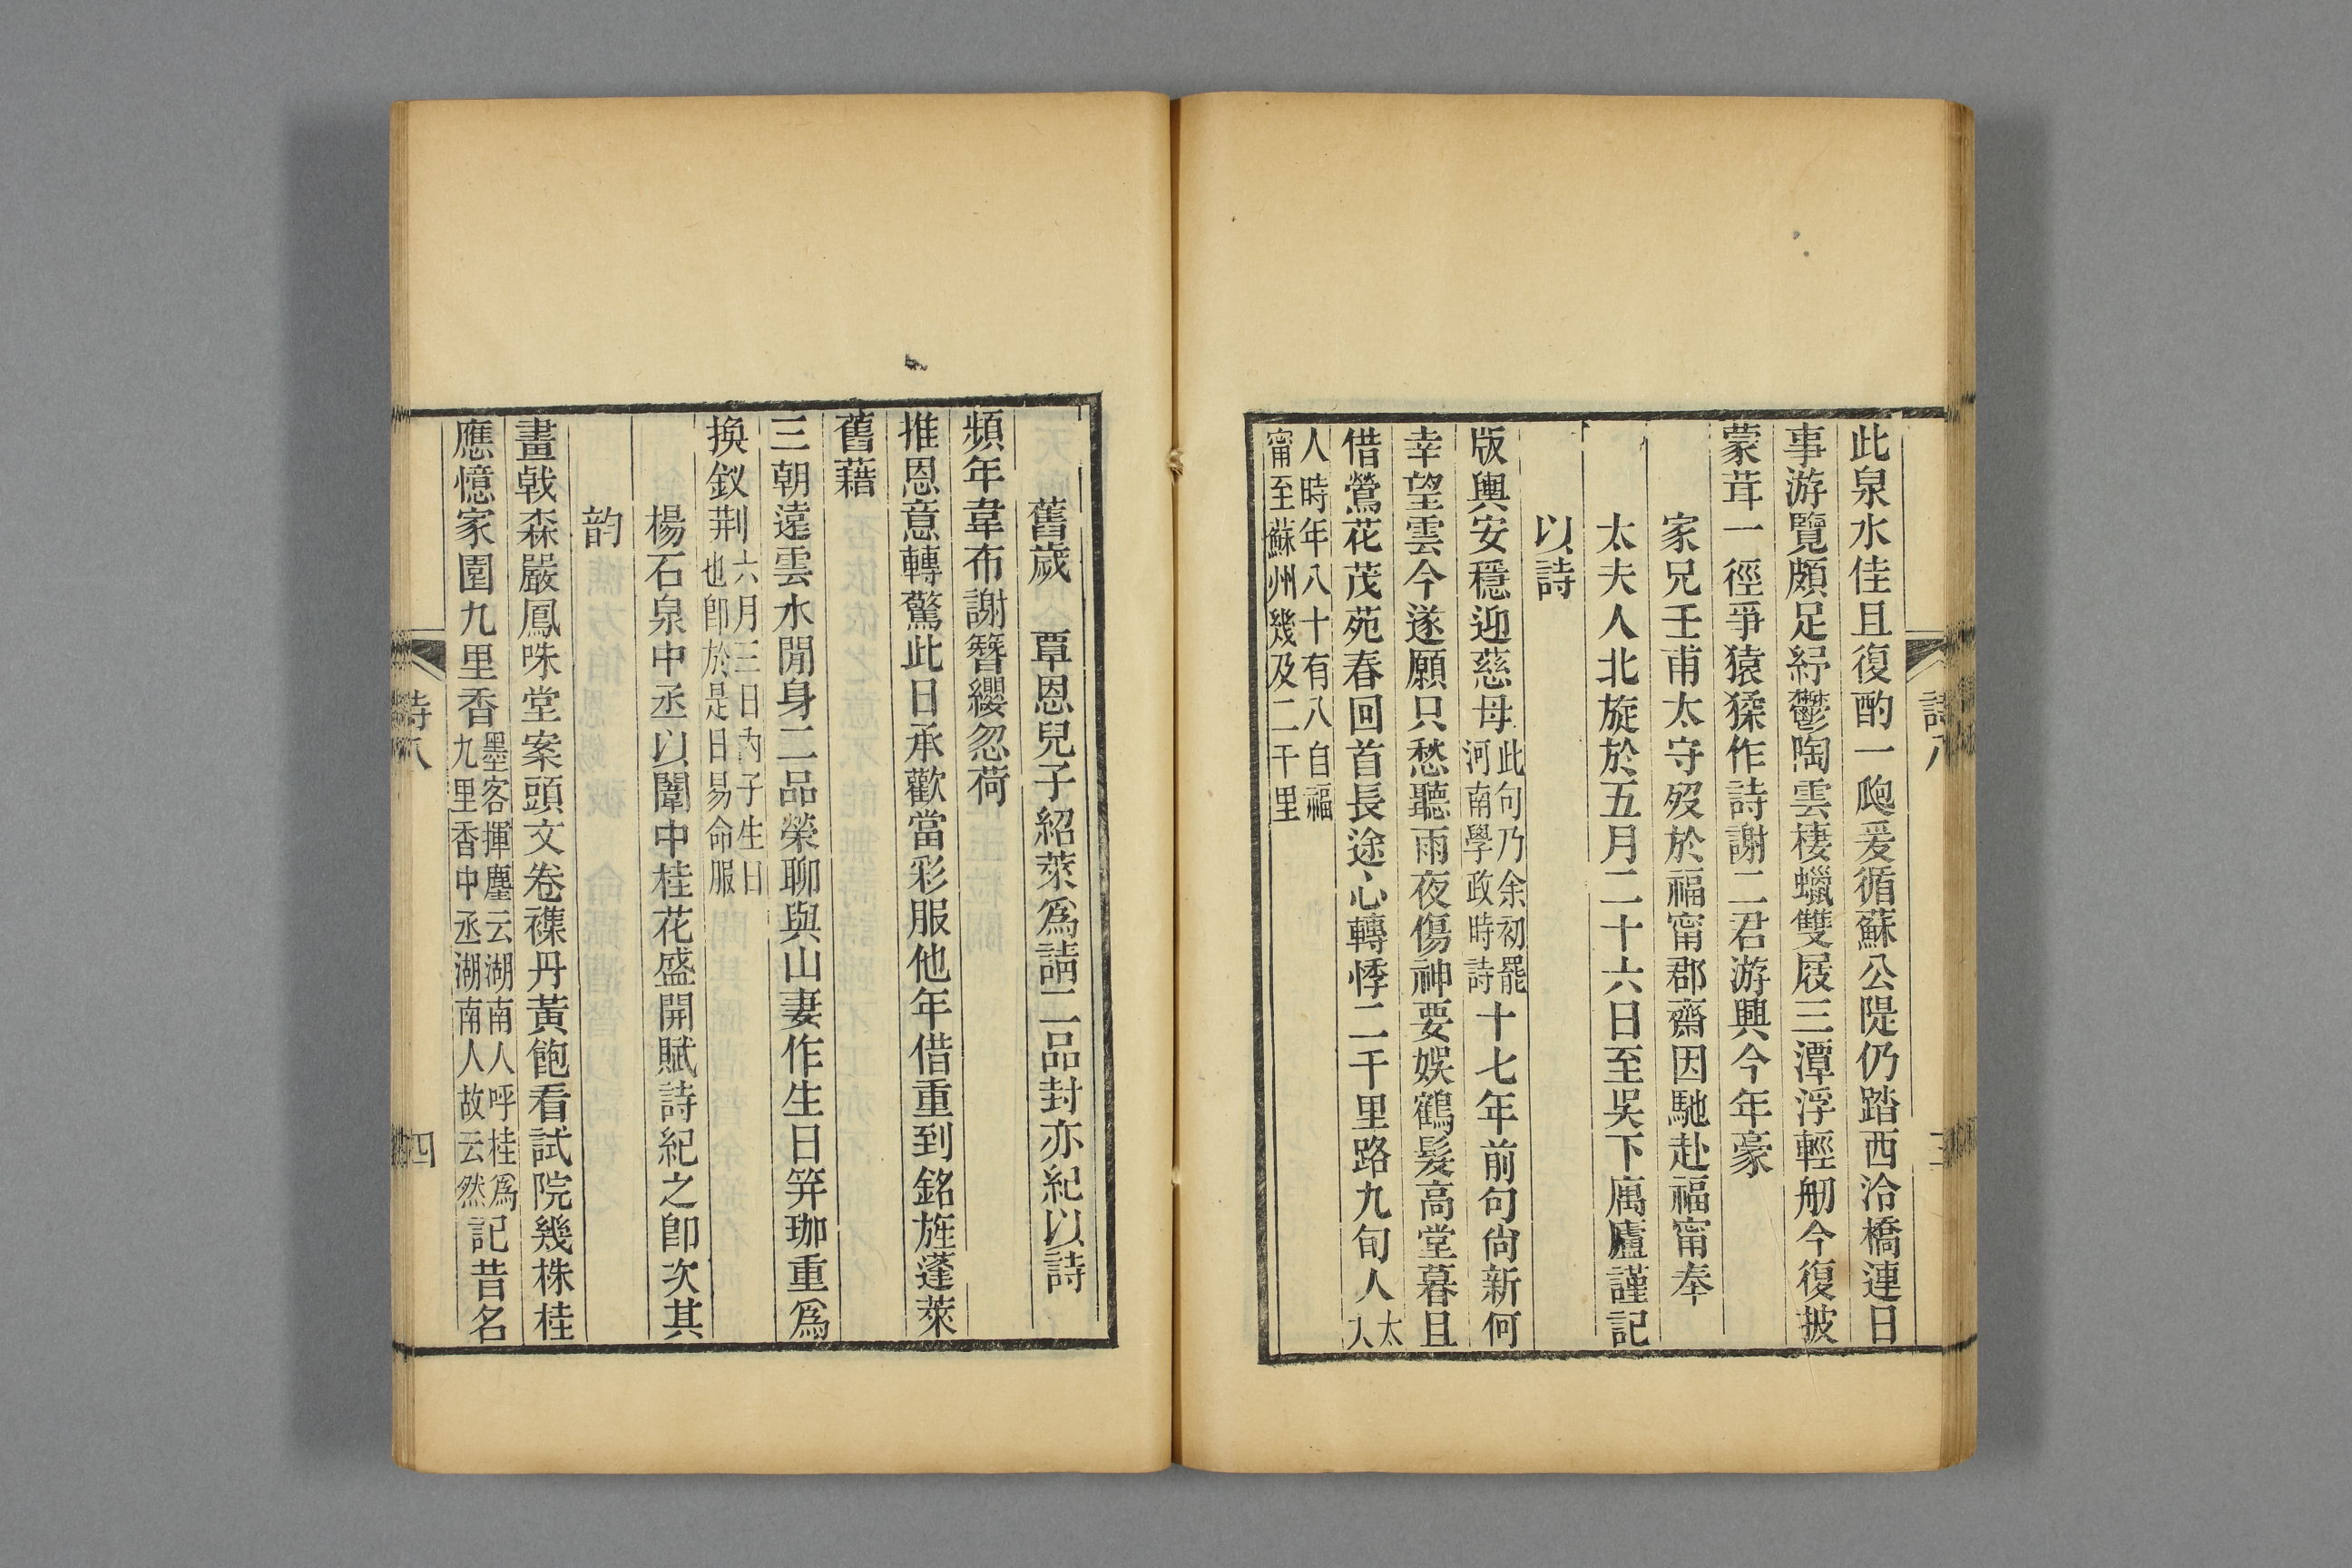 此泉水佳且復酌一爮爰循蘇公隄仍踏西泠橋連日
事游覽頗足紓鬱陶雲棲蠟雙屐三潭浮輕舠今復披
蒙茸一徑爭猿猱作詩謝二君游興今年豪
家兄壬甫太守歿於福甯郡齋因馳赴福甯奉
太夫人北旋於五月二十六日至吳下廡廬謹記
以詩
版輿安穩迎慈母此句乃余初罷河南學政時詩十七年前句尙新何
幸望雲今遂願只愁聽雨夜傷神要娛鶴髮高堂暮且
借鶯花茂苑春回首長途心轉悸二千里路九旬人太夫
人時年八十有八自福甯至蘇州幾及二千里
詩八
三
舊歲 覃恩兒子紹萊爲請二品封亦紀以詩
頻年韋布謝簪纓忽荷
推恩意轉驚此日承歡當彩服他年借重到銘旌蓬萊
舊藉
三朝遠雲水閒身二品榮聊與山妻作生日笄珈重爲
換釵荆六月三日內子生日也卽於是日易命服
楊石泉中丞以闈中桂花盛開賦詩紀之卽次其
韵
畫戟森嚴鳳咮堂案頭文卷襍丹黃飽看試院幾株桂
應憶家園九里香墨客揮塵云湖南人呼桂爲九里香中丞湖南人故云然記昔名
詩八
四